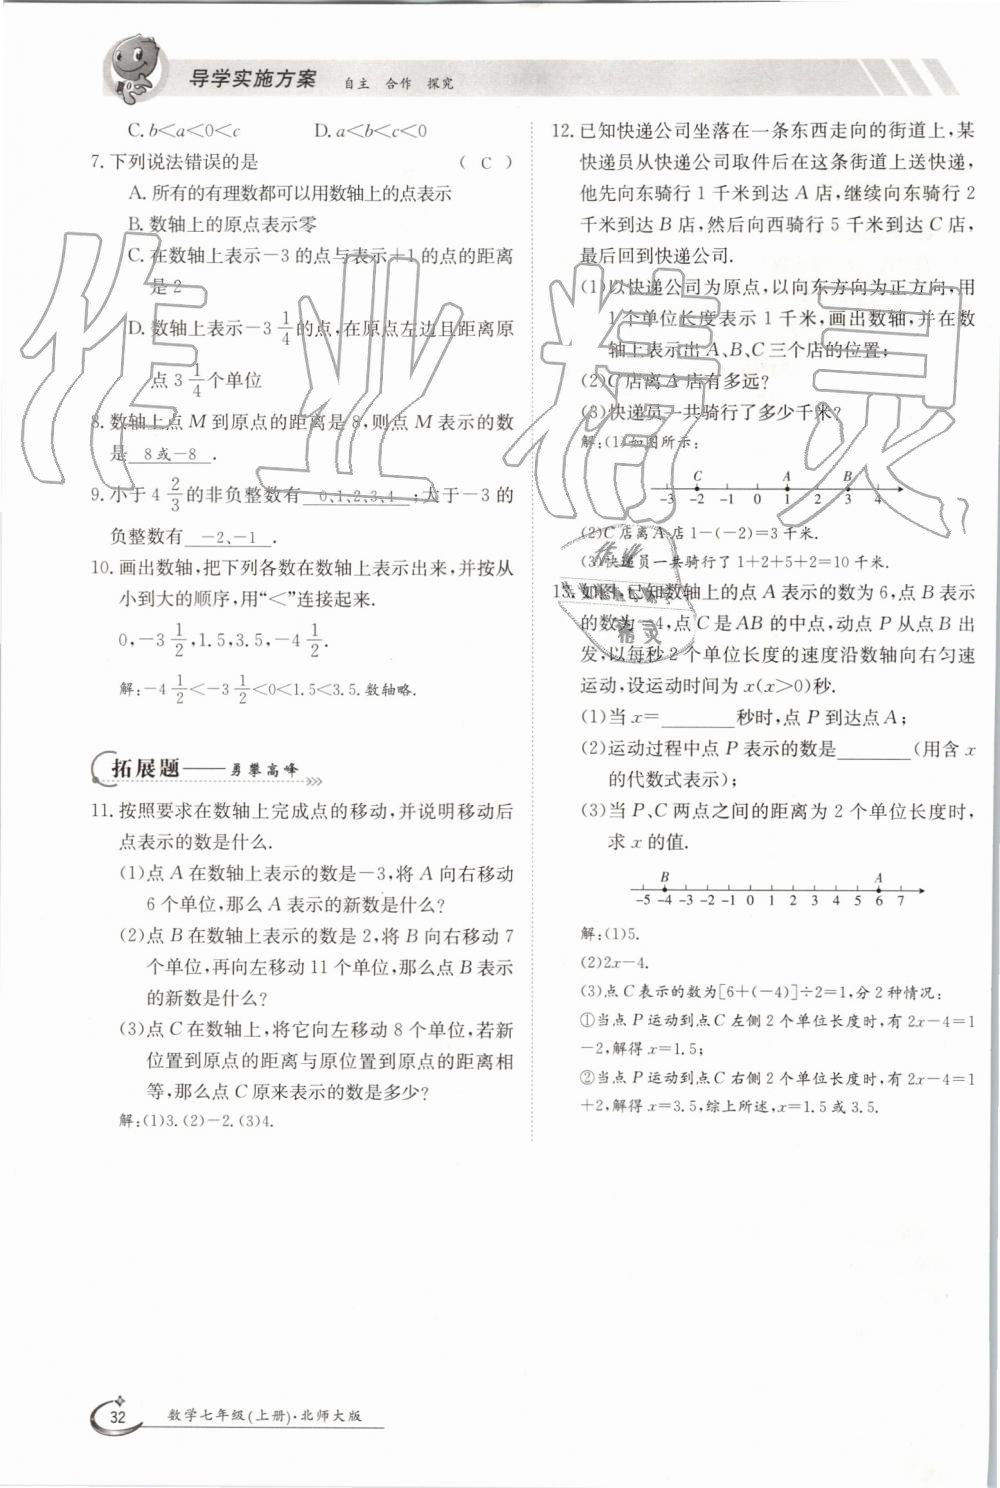 导学实施方案 自主 合作 探究
C. b<a<0<c D. a<b<c<0
7. 下列说法错误的是 ( C )
A. 所有的有理数都可以用数轴上的点表示
B. 数轴上的原点表示零
C. 在数轴上表示-3的点与表示+1的点的距离
是2
D. 数轴上表示-3 1/4的点,在原点左边且距离原
点3 1/4个单位
8. 数轴上点M到原点的距离是8,则点M表示的数
是 8或-8 .
9. 小于4 2/3的非负整数有 0、1、2、3、4 ;大于-3的
负整数有 -2、-1 .
10. 画出数轴,把下列各数在数轴上表示出来,并按从
小到大的顺序,用“<”连接起来.
0,-3 1/2,1.5,3.5,-4 1/2.
解:-4 1/2<-3 1/2<0<1.5<3.5.数轴略.
拓展题——勇攀高峰
11. 按照要求在数轴上完成点的移动,并说明移动后
点表示的数是什么.
(1)点A在数轴上表示的数是-3,将A向右移动
6个单位,那么A表示的新数是什么?
(2)点B在数轴上表示的数是2,将B向右移动7
个单位,再向左移动11个单位,那么点B表示
的新数是什么?
(3)点C在数轴上,将它向左移动8个单位,若新
位置到原点的距离与原位置到原点的距离相
等,那么点C原来表示的数是多少?
解:(1)3.(2)-2.(3)4.
12. 已知快递公司坐落在一条东西走向的街道上,某
快递员从快递公司取件后在这条街道上送快递,
他先向东骑行1千米到达A店,继续向东骑行2
千米到达B店,然后向西骑行5千米到达C店,
最后回到快递公司.
(1)以快递公司为原点,以向东方向为正方向,用
1个单位长度表示1千米,画出数轴,并在数
轴上表示出A、B、C三个店的位置;
(2)C店离A店有多远?
(3)快递员一共骑行了多少千米?
解:(1)如图所示:
C A B
-3 -2 -1 0 1 2 3 4
(2)C店离A店1-(-2)=3千米.
(3)快递员一共骑行了1+2+5+2=10千米.
13. 如图,已知数轴上的点A表示的数为6,点B表示
的数为-4,点C是AB的中点,动点P从点B出
发,以每秒2个单位长度的速度沿数轴向右匀速
运动,设运动时间为x(x>0)秒.
(1)当x=______秒时,点P到达点A;
(2)运动过程中点P表示的数是______(用含x
的代数式表示);
(3)当P、C两点之间的距离为2个单位长度时,
求x的值.
B A
-5 -4 -3 -2 -1 0 1 2 3 4 5 6 7
解:(1)5.
(2)2x-4.
(3)点C表示的数为[6+(-4)]÷2=1,分2种情况:
①当点P运动到点C左侧2个单位长度时,有2x-4=1
-2,解得x=1.5;
②当点P运动到点C右侧2个单位长度时,有2x-4=1
+2,解得x=3.5,综上所述,x=1.5或3.5.
作业精灵
作业
精灵
32 数学七年级(上册)·北师大版